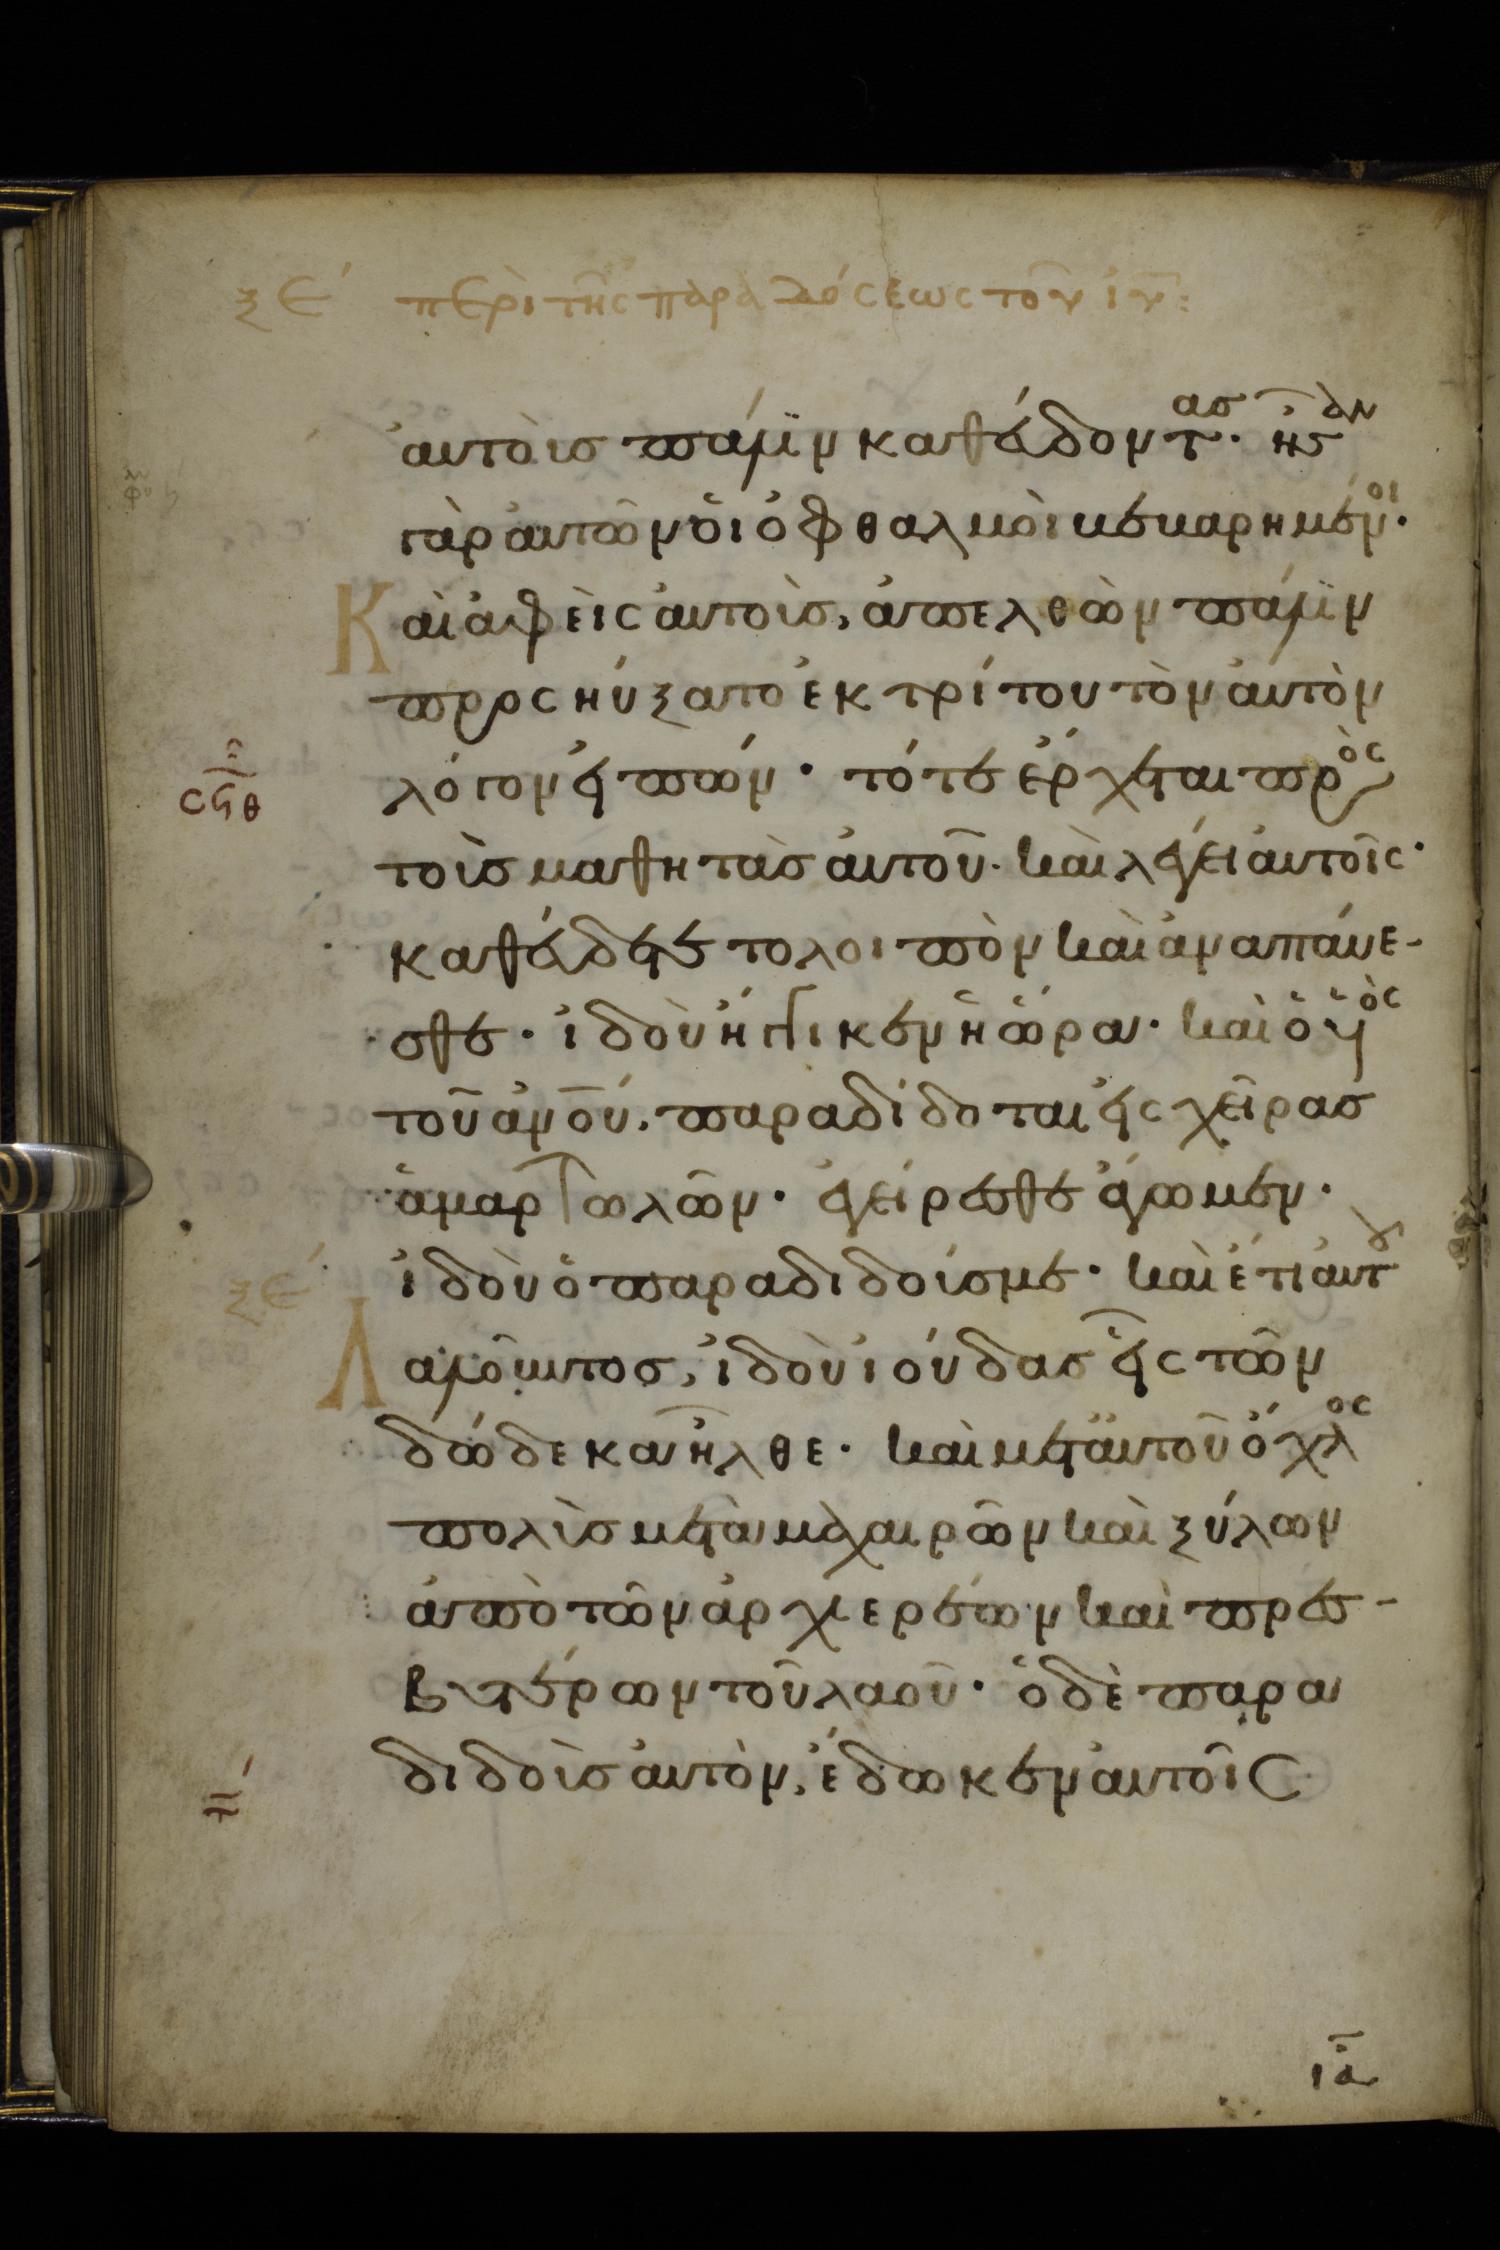 ξε περὶ τῆς παραδόσεως τοῦ ἰυ:
ἀυτὸισ πάλϊν καθέυδοντασ. ἦσὰν
γὰρ ἀυτῶν ὁι ὀφθαλμὸι κεκαρημένοι.
Καὶ ἀφεὶς ἀυτοὶσ, ἀπελθὼν πάλϊν
προσηύξατο ἐκ τρίτου τὸν ἀυτὸν
λόγον ἐιπών. τότε ἔρχεται πρὸς
ςϟθ
β
τοὶσ μαθητὰσ ἀυτοῦ. καὶ λέγει ἀυτοῖς.
καθέυδετε τολοιπὸν καὶ ἀναπάυε-
σθε. ἰδοὺ ἤγγικεν ἡ ὥρα. καὶ ὁ ὑὸς
τοῦ ἀνου. παραδίδοται ἐις χεῖρασ
ἁμαρτωλῶν. ἐγείρεσθε ἄγωμεν.
ἰδοὺ ὁ παραδιδοίσμε. καὶ ἔτι ἀυτου
ξε
Λαλοῦντοσ, ἰδοὺ ἰούδασ ἑις τῶν
δώδεκα ἦλθε. καὶ μετ ἀυτοῦ ὄχλος
πολὶσ μετὰ μαχαιρῶν καὶ ξύλων
ἀπὸ τῶν ἀρχιερέων καὶ πρεσ-
βυτέρων τοῦ λαοῦ. ὁ δὲ παρα
διδοὶσ ἀυτὸν, ἔδωκεν ἀυτοῖς
τ
ια